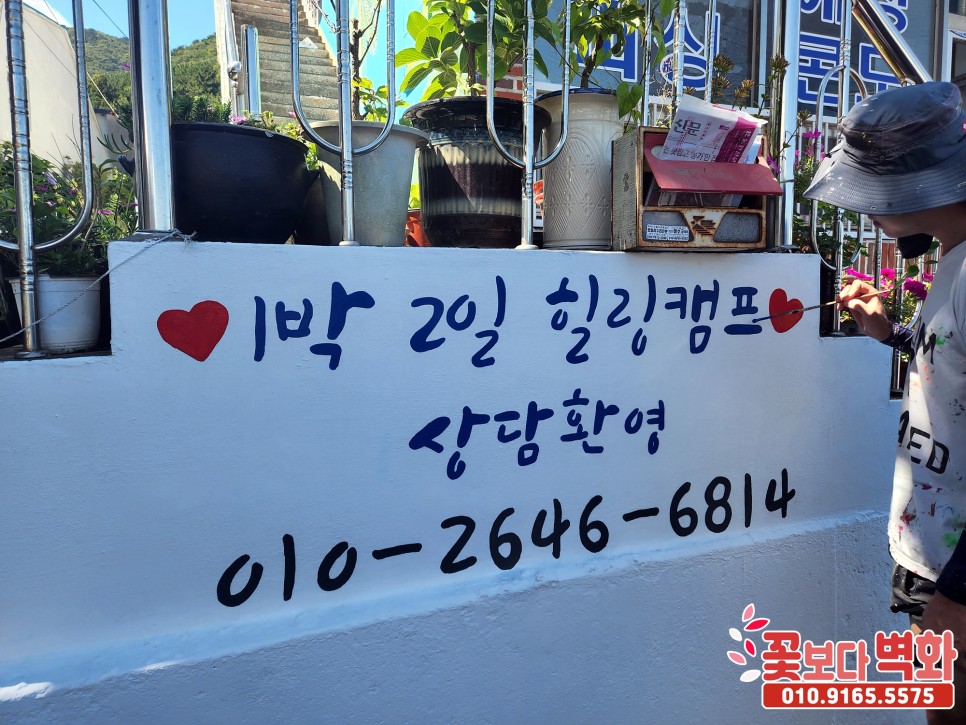 신문
1박 2일 힐링캠프
상담환영
010-2646-6814
꽃보다벽화
010.9165.5575